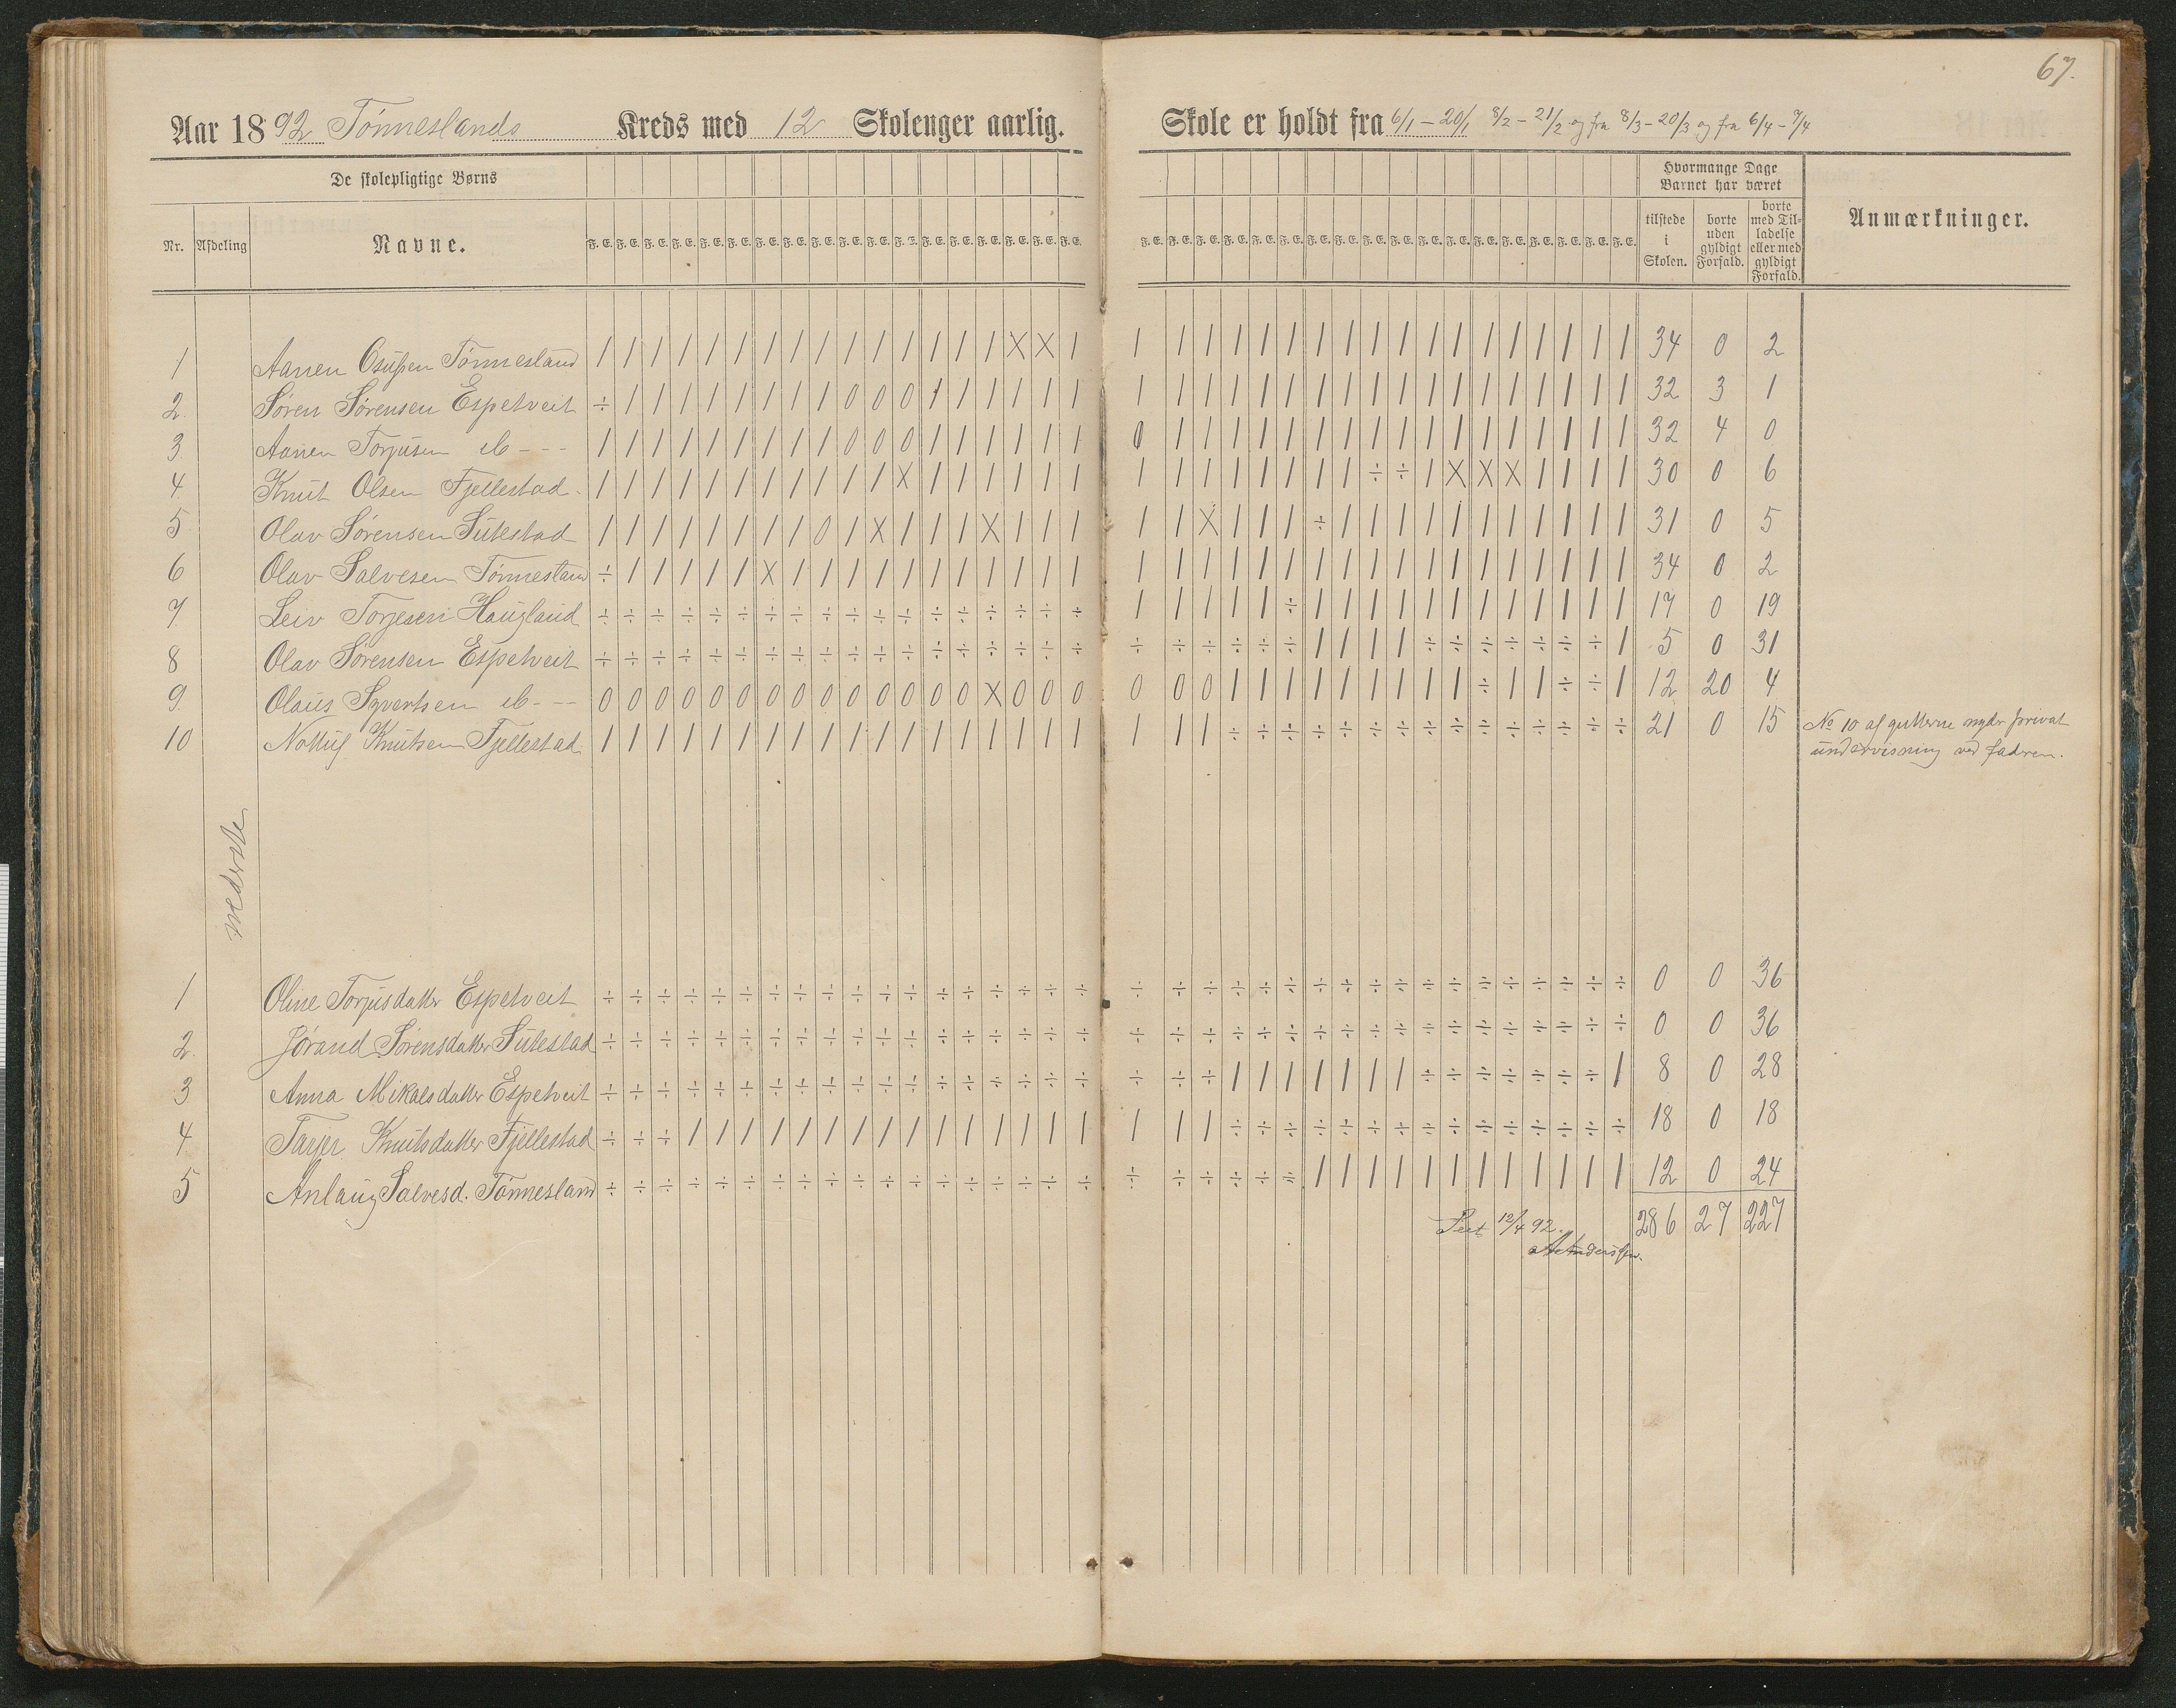 67.
Aar 1892 Tønneslands Kreds med 12 Skoleuger aarlig. Skole er holdt fra 6/1 – 20/1 8/2 – 21/2 og fra 8/3 – 20/3 og fra 6/4 – 7/4
De skolepligtige Børns
Hvormange Dage Barnet har været
Nr. Afdeling Navne. F. E. tilstede i Skolen. borte uden gyldigt Forfald. borte med Tilladelse eller med gyldigt Forfald. Anmærkninger.
1 Aanen Osufsen Tønnesland / / / / / / / / / / / / / / / X X / / / / / / / / / / / / / / / / / / / 34 0 2
2. Søren Sørensen Espetveit ÷ / / / / / / / / 0 0 0 / / / / / / / / / / / / / / / / / / / / / / / / 32 3 1
3. Aanen Torjusen do - - - / / / / / / / / / 0 0 0 / / / / / / 0 / / / / / / / / / / / / / / / / / 32 4 0
4. Knut Olsen Fjellestad / / / / / / / / / / / X / / / / / / / / / / / / / / ÷ ÷ / X X X / / / / 30 0 6
5 Olav Sørensen Sutestad / / / / / / / / 0 / X / / / X / / / / / X / / / ÷ / / / / / / / / / / / 31 0 5
6 Olav Salvesen Tønnesland ÷ / / / / / X / / / / / / / / / / / / / / / / / / / / / / / / / / / / / 34 0 2
7 Leiv Torjesen Haugland ÷ ÷ ÷ ÷ ÷ ÷ ÷ ÷ ÷ ÷ ÷ ÷ ÷ ÷ ÷ ÷ ÷ ÷ / / / / / ÷ / / / / / / / / / / / / 17 0 19
8 Olav Sørensen Espetveit ÷ ÷ ÷ ÷ ÷ ÷ ÷ ÷ ÷ ÷ ÷ ÷ ÷ ÷ ÷ ÷ ÷ ÷ ÷ ÷ ÷ ÷ ÷ ÷ / / / / ÷ ÷ ÷ ÷ ÷ ÷ ÷ / 5 0 31
9. Olaus Syvertsen do - - - 0 0 0 0 0 0 0 0 0 0 0 0 0 0 X 0 0 0 0 0 0 / / / / / / / / / ÷ / / ÷ ÷ / 12 20 4
10 Nottuf Knutsen Fjellestad / / / / / / / / / / / / / / / / / / / / / ÷ ÷ ÷ ÷ ÷ ÷ ÷ ÷ ÷ ÷ ÷ ÷ ÷ ÷ ÷ 21 0 15 No 10 af gutterne nyder privat
undervisning ved faderen.
nederste
1 Oline Torjusdatter Espetveit ÷ ÷ ÷ ÷ ÷ ÷ ÷ ÷ ÷ ÷ ÷ ÷ ÷ ÷ ÷ ÷ ÷ ÷ ÷ ÷ ÷ ÷ ÷ ÷ ÷ ÷ ÷ ÷ ÷ ÷ ÷ ÷ ÷ ÷ ÷ ÷ 0 0 36
2. Jørand Sørensdatter Sutestad ÷ ÷ ÷ ÷ ÷ ÷ ÷ ÷ ÷ ÷ ÷ ÷ ÷ ÷ ÷ ÷ ÷ ÷ ÷ ÷ ÷ ÷ ÷ ÷ ÷ ÷ ÷ ÷ ÷ ÷ ÷ ÷ ÷ ÷ ÷ ÷ 0 0 36
3 Anna Mikalsdatter Espetveit ÷ ÷ ÷ ÷ ÷ ÷ ÷ ÷ ÷ ÷ ÷ ÷ ÷ ÷ ÷ ÷ ÷ ÷ ÷ ÷ ÷ / / / / / / / ÷ ÷ ÷ ÷ ÷ ÷ ÷ / 8 0 28
4 Tarjer Knutsdatter Fjellestad ÷ ÷ ÷ / / / / / / / / / / / / / / / / / / ÷ ÷ ÷ ÷ ÷ ÷ ÷ ÷ ÷ ÷ ÷ ÷ ÷ ÷ ÷ 18 0 18
5 Anlaug Salvesd. Tønnesland ÷ ÷ ÷ ÷ ÷ ÷ ÷ ÷ ÷ ÷ ÷ ÷ ÷ ÷ ÷ ÷ ÷ ÷ ÷ ÷ ÷ ÷ ÷ ÷ / / / / / / / / / / / / 12 0 24
Seet 12/4 92. 286 27 227
A Anderssen.